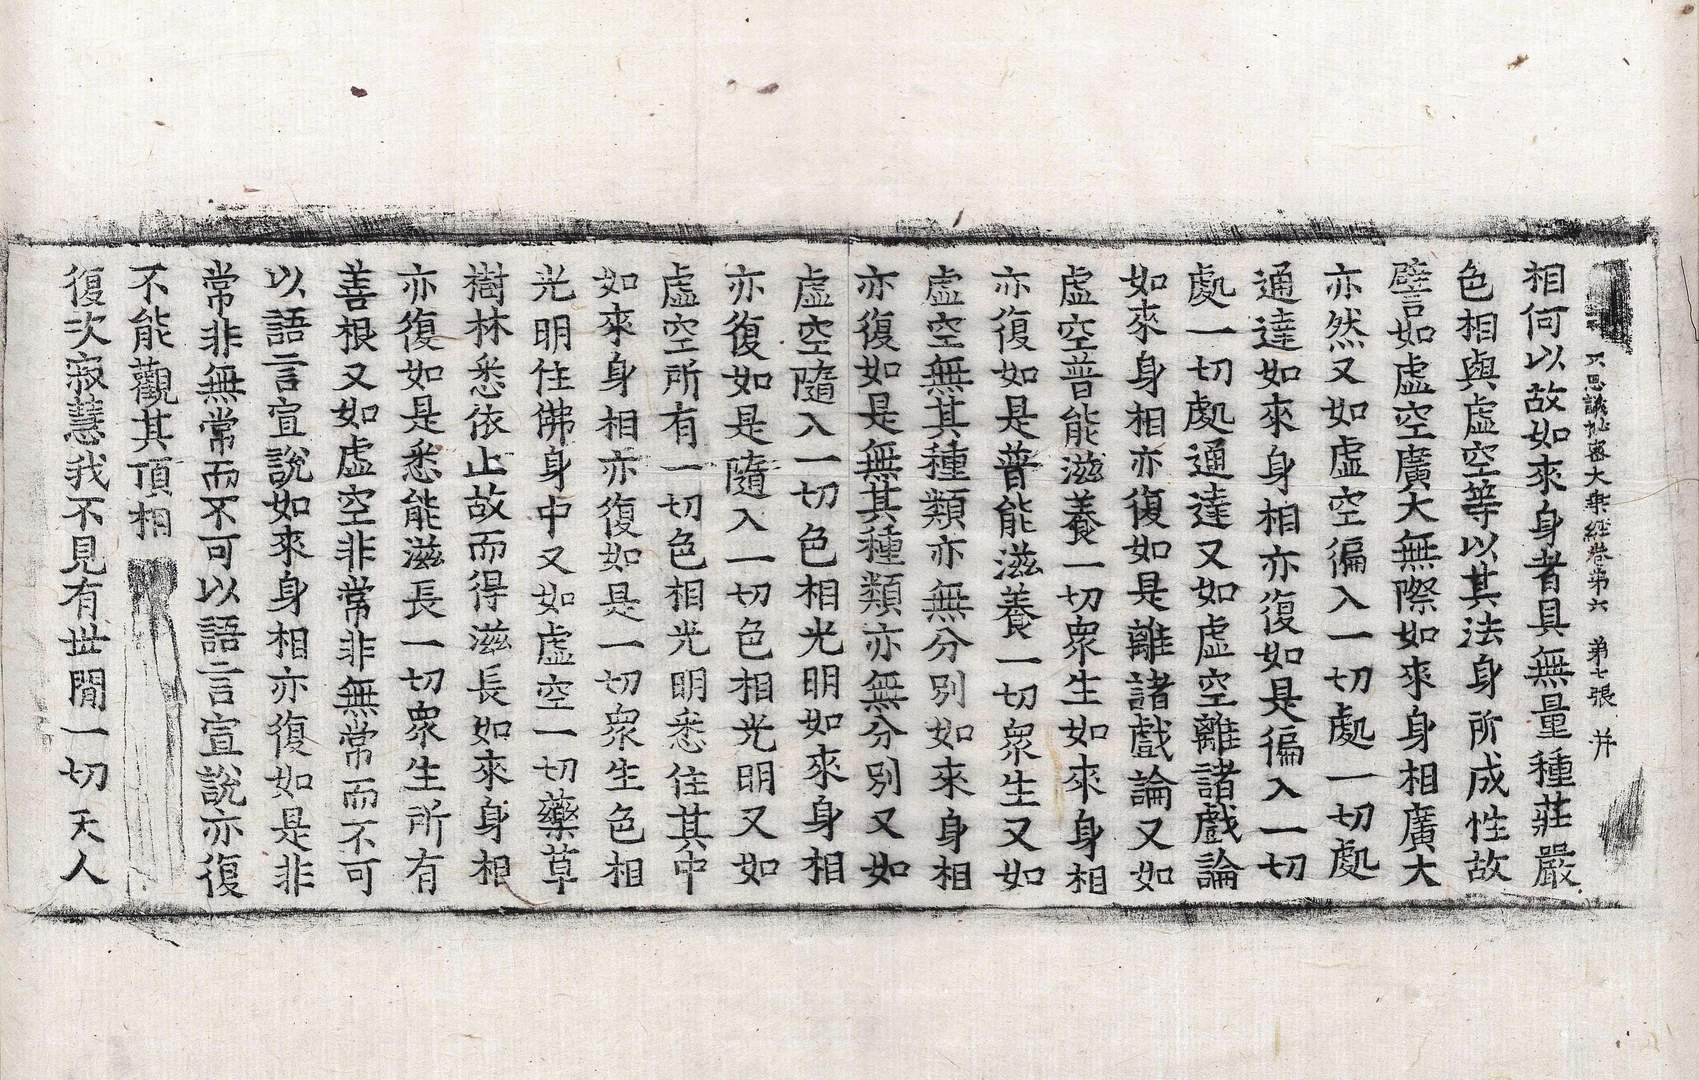 不思議祕密大乘經卷第六　第七張　幷
相何以故如來身者具無量種莊嚴
色相與虛空等以其法身所成性故
譬如虛空廣大無際如來身相廣大
亦然又如虛空徧入一切處一切處
通達如來身相亦復如是徧入一切
處一切處通達又如虛空離諸戲論
如來身相亦復如是離諸戲論又如
虛空普能滋養一切衆生如來身相
亦復如是普能滋養一切衆生又如
虛空無其種類亦無分別如來身相
亦復如是無其種類亦無分別又如
虛空隨入一切色相光明如來身相
亦復如是隨入一切色相光明又如
虛空所有一切色相光明悉住其中
如來身相亦復如是一切衆生色相
光明住佛身中又如虛空一切藥草
樹林悉依止故而得滋長如來身相
亦復如是悉能滋長一切衆生所有
善根又如虛空非常非無常而不可
以語言宣說如來身相亦復如是非
常非無常而不可以語言宣說亦復
不能觀其頂相
復次寂慧我不見有世間一切天人